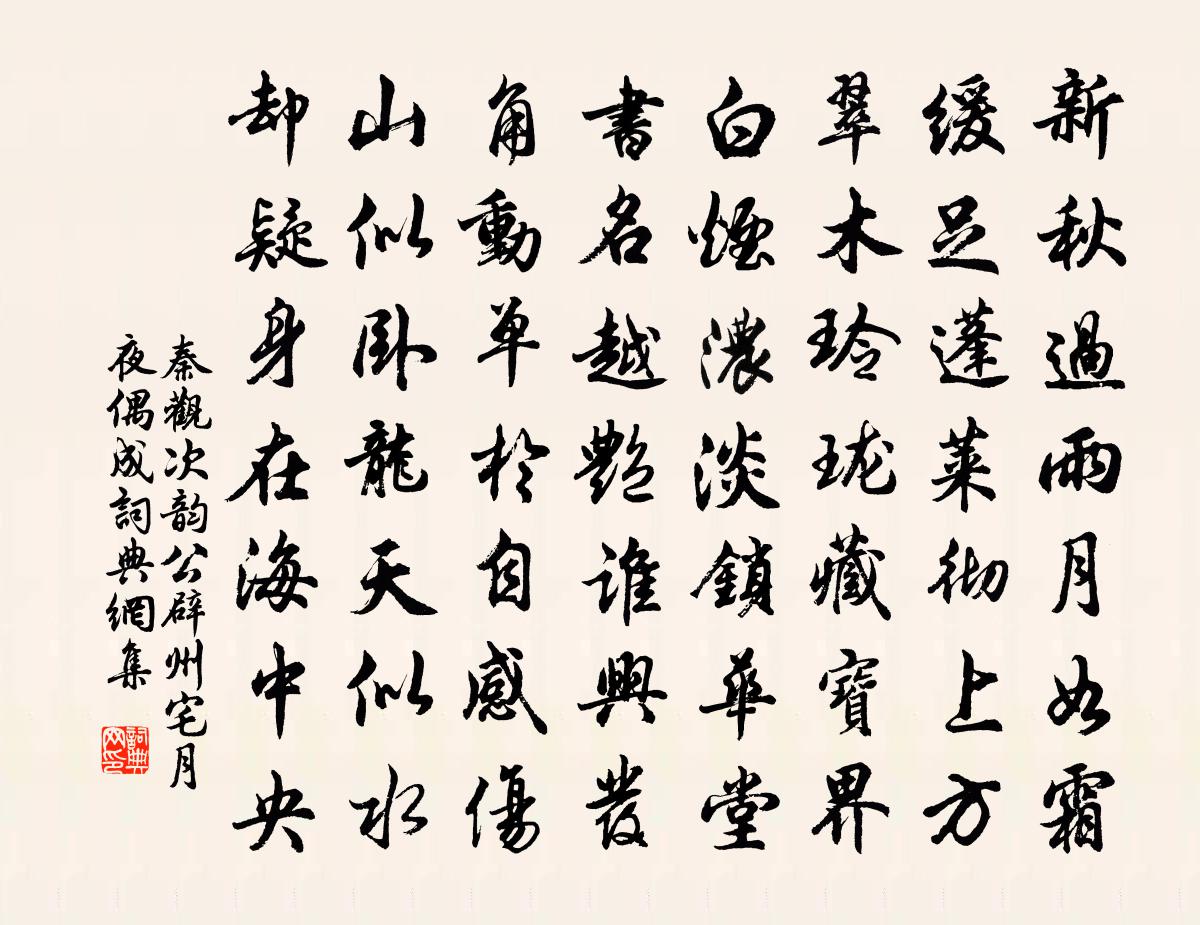 新秋過雨月如霜
緩足蓬萊徹上方
翠木玲瓏藏寶界
白煙濃淡鎖華堂
書名越艷誰興發
角動單於自感傷
山似臥龍天似水
卻疑身在海中央
秦觀次韵公辟州宅月
夜偶成詞典網集
詞典
网印